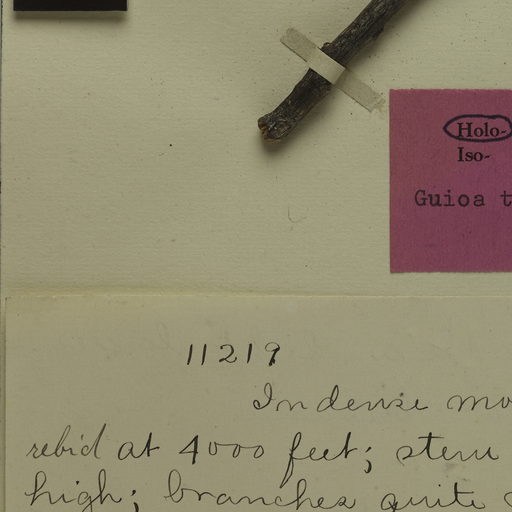 Holo-
Iso-
Guioa t
11219
In dense mo
at 4000 feet; stem
high; branches quite